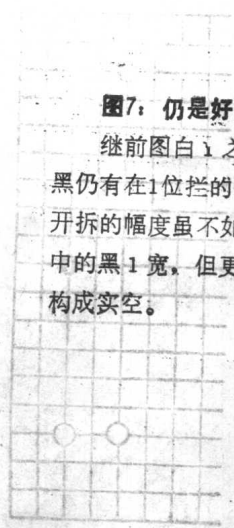 图7：仍是好
继前图白1之
黑仍有在1位拦的
开拆的幅度虽不如
中的黑1宽，但更
构成实空。